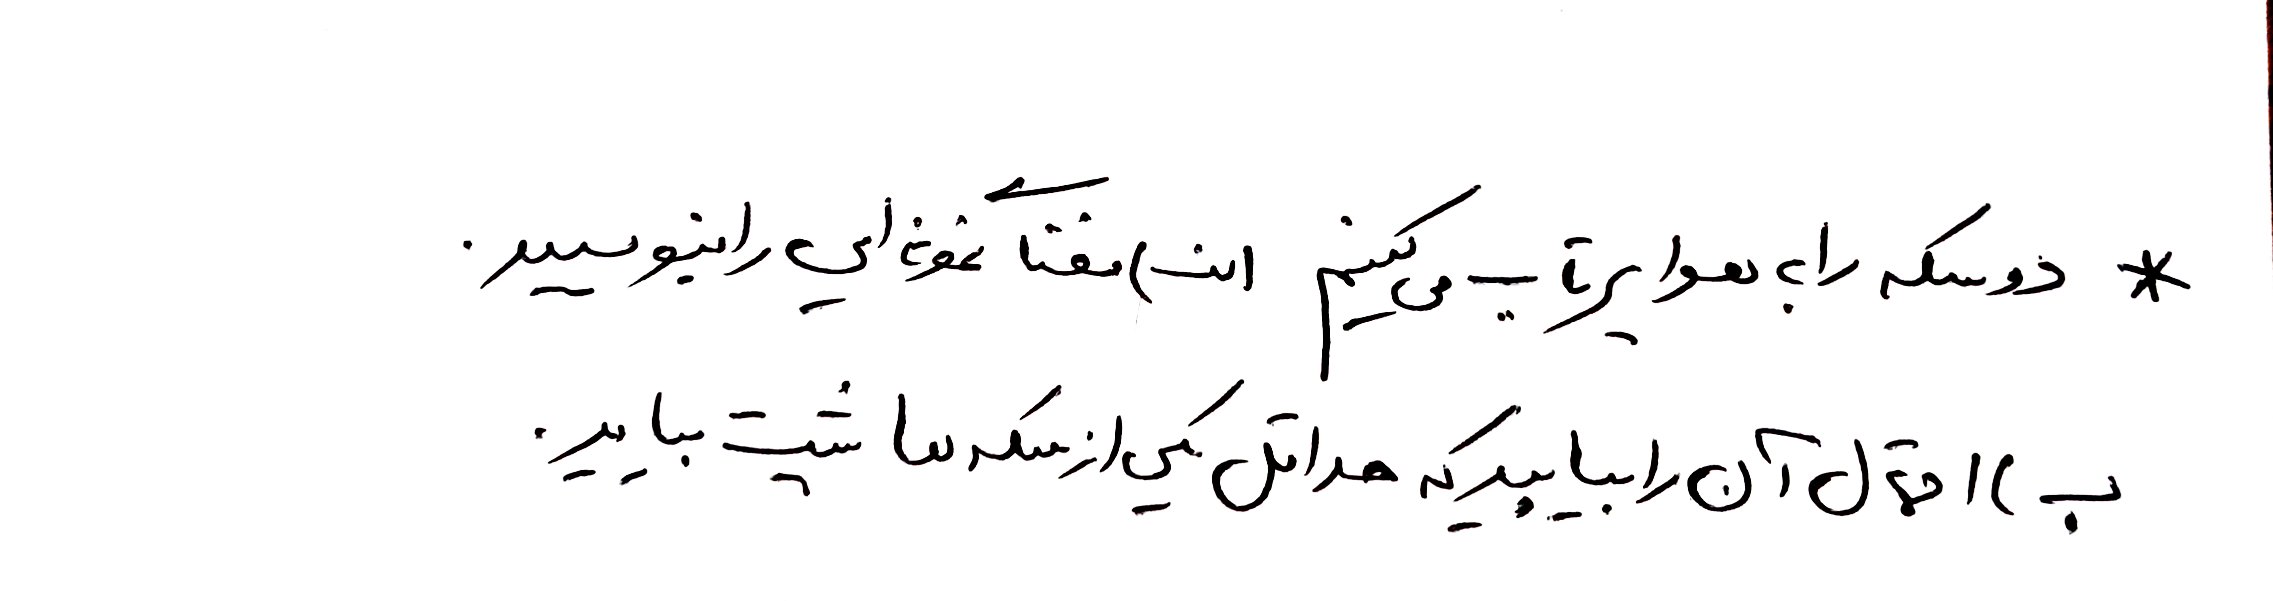 * دو سکه را به هوا پرتاب می‌کنیم الف) فضای نمونه‌ای را بنویسید.
ب) احتمال آن را بیابید که حداقل یکی از سکه‌ها پشت بیاید.